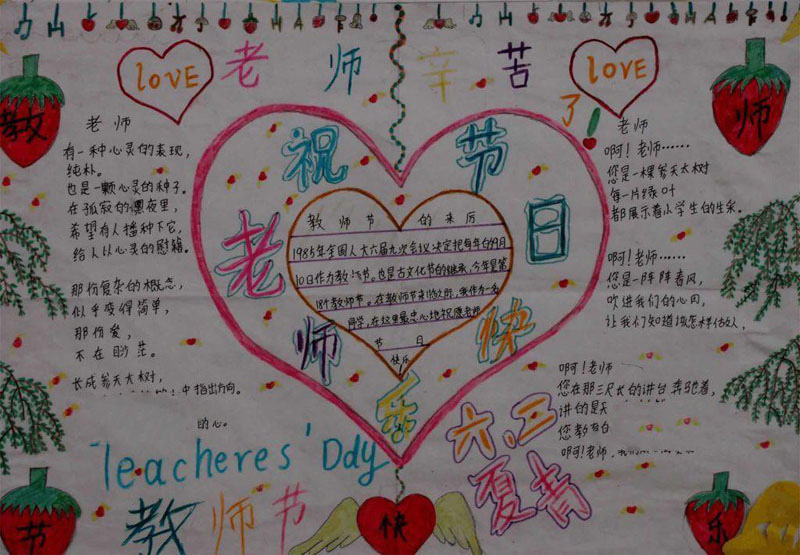 老师辛苦了!
love
love
教
师
节
快
乐
祝老师节日快乐
老师
有一种心灵的表现,
纯朴。
也是一颗心灵的种子。
在孤寂的夜里,
希望有人播种下它,
给人以心灵的慰籍。
那份复杂的概念,
似乎变得简单,
那份爱,
不在
长成参天大树,
中指出方向。
的心。
教师节的来历
1985年全国人大六届九次会议决定把每年的9月
10日作为教师节。也是古文化节的继承,今年是第
18个教师节。在教师节来临之前,我作为一名
同学,在这里最忠心地祝愿老师
节日
快乐
老师
啊!老师……
您是一棵参天大树
每一片绿叶
都展示着小学生的生采。
啊!老师……
您是一阵阵春风,
吹进我们的心田,
让我们知道该怎样做人。
啊!老师
您在那三尺长的讲台奔驰着,
讲的是
您教
啊!老师,
Teacheres' Day
教师节
六、三
夏青